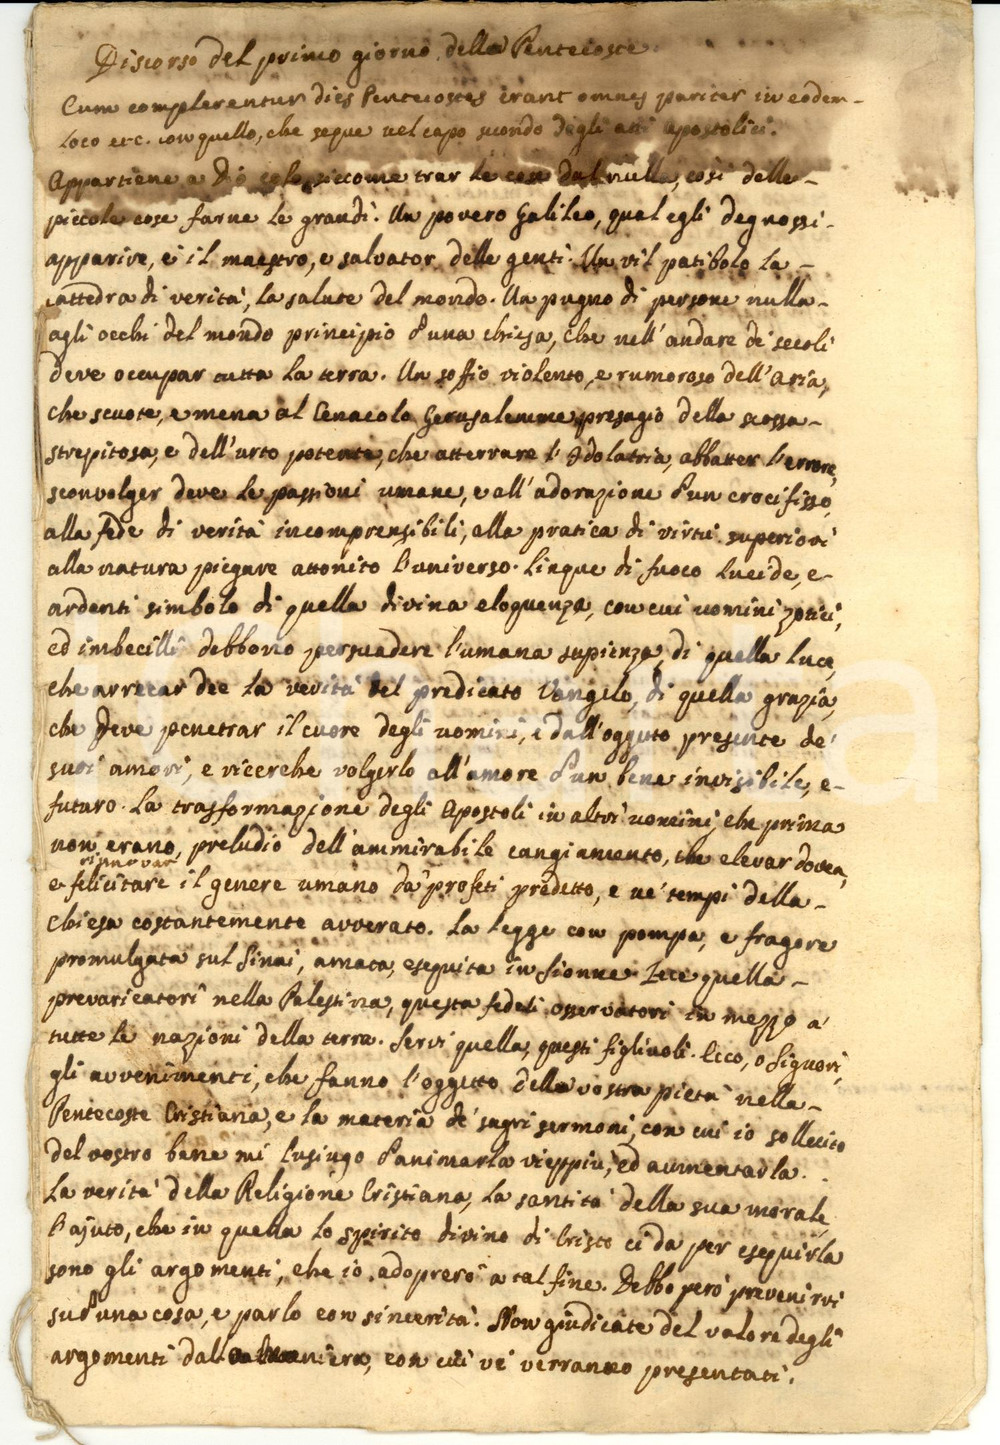 Discorso del primo giorno della Pentecoste
Cum complerentur dies Pentecostes erant omnes pariter in eodem
loco etc. con quello, che segue nel capo secondo degli atti apostolici.
Appartiene a Dio solo, siccome trar le cose dal nulla, così delle
piccole cose farne le grandi. Un povero Galileo, qual egli degnossi
apparire, è il maestro, e salvator delle genti. Un vil patibolo la
cattedra di verità, la salute del mondo. Un pugno di persone nulla
agli occhi del mondo principio d'una chiesa, che nell'andare de' secoli
deve occupar tutta la terra. Un soffio violento, e rumoroso dell'Aria,
che scuote, e mena al Cenacolo Gerusalemme presagio della scossa
strepitosa, e dell'urto potente, che atterrare l'Idolatria, abbatter l'errore,
sconvolger deve le passioni umane, e all'adorazione d'un crocifisso,
alla fede di verità incomprensibili, alla pratica di virtù superiori
alla natura piegare attonito l'universo. Lingue di fuoco lucide, e
ardenti simbolo di quella divina eloquenza, con cui uomini zotici,
ed imbecilli debbono persuadere l'umana sapienza, di quella luce,
che arrecar dee la verità del predicato Vangelo, di quella grazia,
che deve penetrar il cuore degli uomini, e dall'oggetto presente de'
suoi amori, e ricerche volgerlo all'amore d'un bene invisibile, e
futuro. La trasformazione degli Apostoli in altri uomini, che prima
non erano, preludio dell'ammirabile cangiamento, che elevar dovea,
rinnovar
e felicitare il genere umano da' profeti predetto, e ne' tempi della
Chiesa costantemente avverato. La legge con pompa, e fragore
promulgata sul Sinai, amata, eseguita in Sionne. Fece quella
prevaricatori nella Palestina, questa fedeli osservatori in mezzo a
tutte le nazioni della terra. Servi quella, questi figliuoli. Ecco, o Signori,
gli avvenimenti, che fanno l'oggetto della vostra pietà nella
Pentecoste Cristiana, e la materia de' sagri sermoni, con cui io sollecito
del vostro bene mi lusingo d'animarla vieppiù, ed aumentarla.
La verità della Religione Cristiana, la santità della sua morale,
l'ajuto, che in quella lo spirito divino di Cristo ci da per eseguirla
sono gli argomenti, che io adoprerò a tal fine. Debbo però prevenirvi
su d'una cosa, e parlo con sincerità. Non giudicate del valore degli
argomenti dalla maniera, con cui vi verranno presentati.